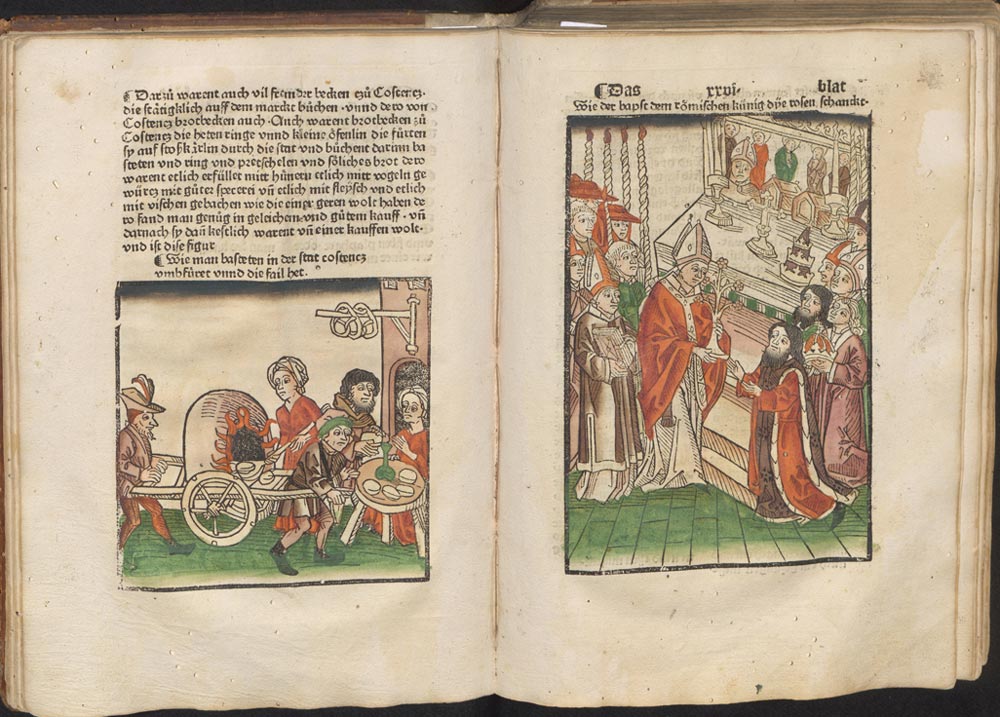 ¶ Darzů warent auch vil fremder becken czů Costencz·
die stätigklich auff dem marckt bůchen · vnnd dero von
Costencz brotbecken auch · Auch warent brotbecken zů
Costencz die heten ringe vnnd kleine öfenlin die fůrten
sy auf stoßkärlin durch die stat vnd bůchent darinn ba
steten vnd ring vnd pretschelen vnd söliches brot dero
warent etlich erfüllet mitt hůnern etlich mitt vogeln ge
würcz mit gůter specerei vn̄ etlich mit fleysch vnd etlich
mit vischen gebachen wie die einer geren wolt haben de
ro fand man genůg in geleichem vnd gůtem kauff · vn̄
darnach sy dan̄ kestlich warent vn̄ einer kauffen wolt·
vnd ist dise figur
¶ Wie man basteten in der stat costencz
vmbfůret vnnd die fail het·
¶ Das xxvi· blat
Wie der bapst dem römischen künig dye rosen schanckt·